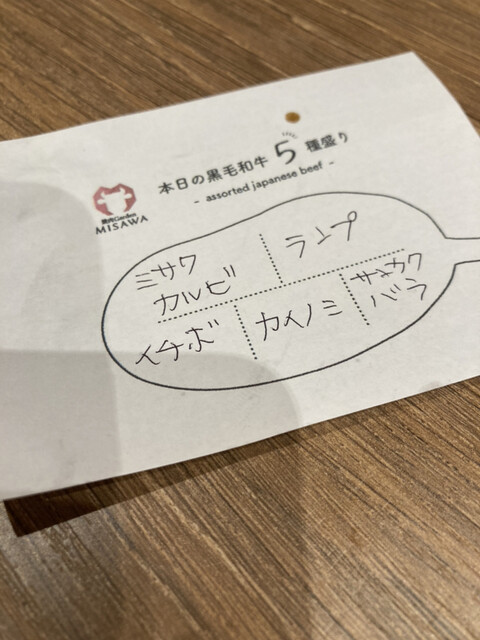 本日の黒毛和牛5種盛り
- assorted japanese beef -
焼肉Garden
MISAWA
ミサワ
カルビ
ランプ
イチボ
カイノミ
サンカク
バラ